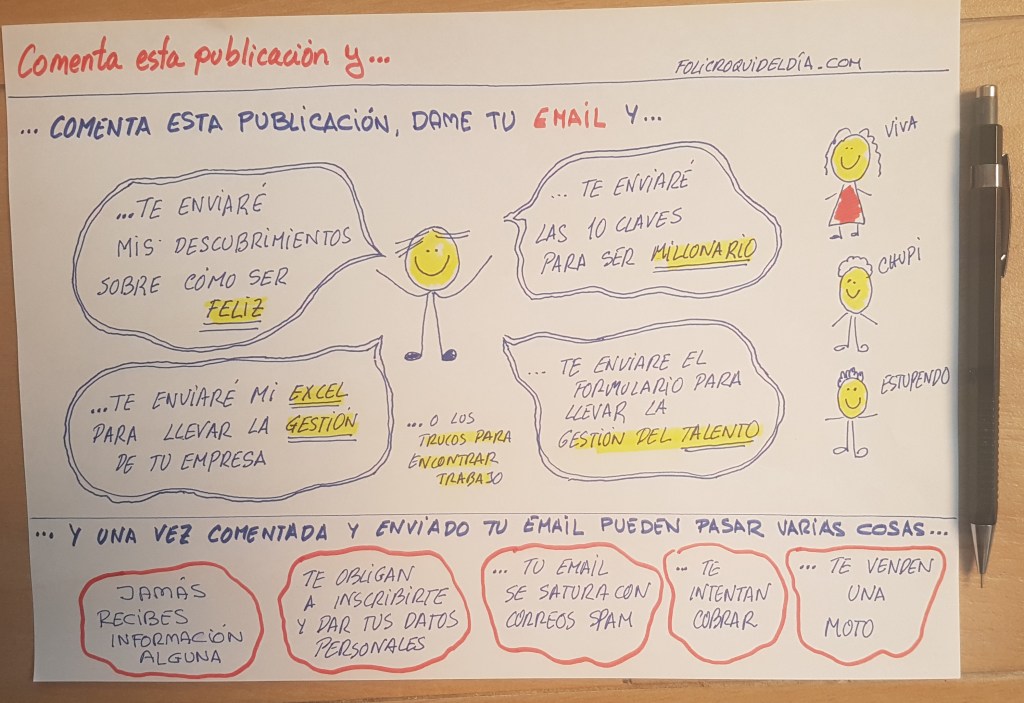 Comenta esta publicación y...
FOLICROQUIDELDÍA.COM
... COMENTA ESTA PUBLICACIÓN, DAME TU EMAIL Y...
...TE ENVIARÉ
MIS DESCUBRIMIENTOS
SOBRE CÓMO SER
FELIZ
... TE ENVIARÉ
LAS 10 CLAVES
PARA SER MILLONARIO
VIVA
CHUPI
ESTUPENDO
...TE ENVIARÉ MI EXCEL
PARA LLEVAR LA GESTIÓN
DE TU EMPRESA
... O LOS
TRUCOS PARA
ENCONTRAR
TRABAJO
... TE ENVIARE EL
FORMULARIO PARA
LLEVAR LA
GESTIÓN DEL TALENTO
... Y UNA VEZ COMENTADA Y ENVIADO TU EMAIL PUEDEN PASAR VARIAS COSAS...
JAMÁS
RECIBES
INFORMACIÓN
ALGUNA
TE OBLIGAN
A INSCRIBIRTE
Y DAR TUS DATOS
PERSONALES
... TU EMAIL
SE SATURA CON
CORREOS SPAM
... TE
INTENTAN
COBRAR
... TE VENDEN
UNA
MOTO